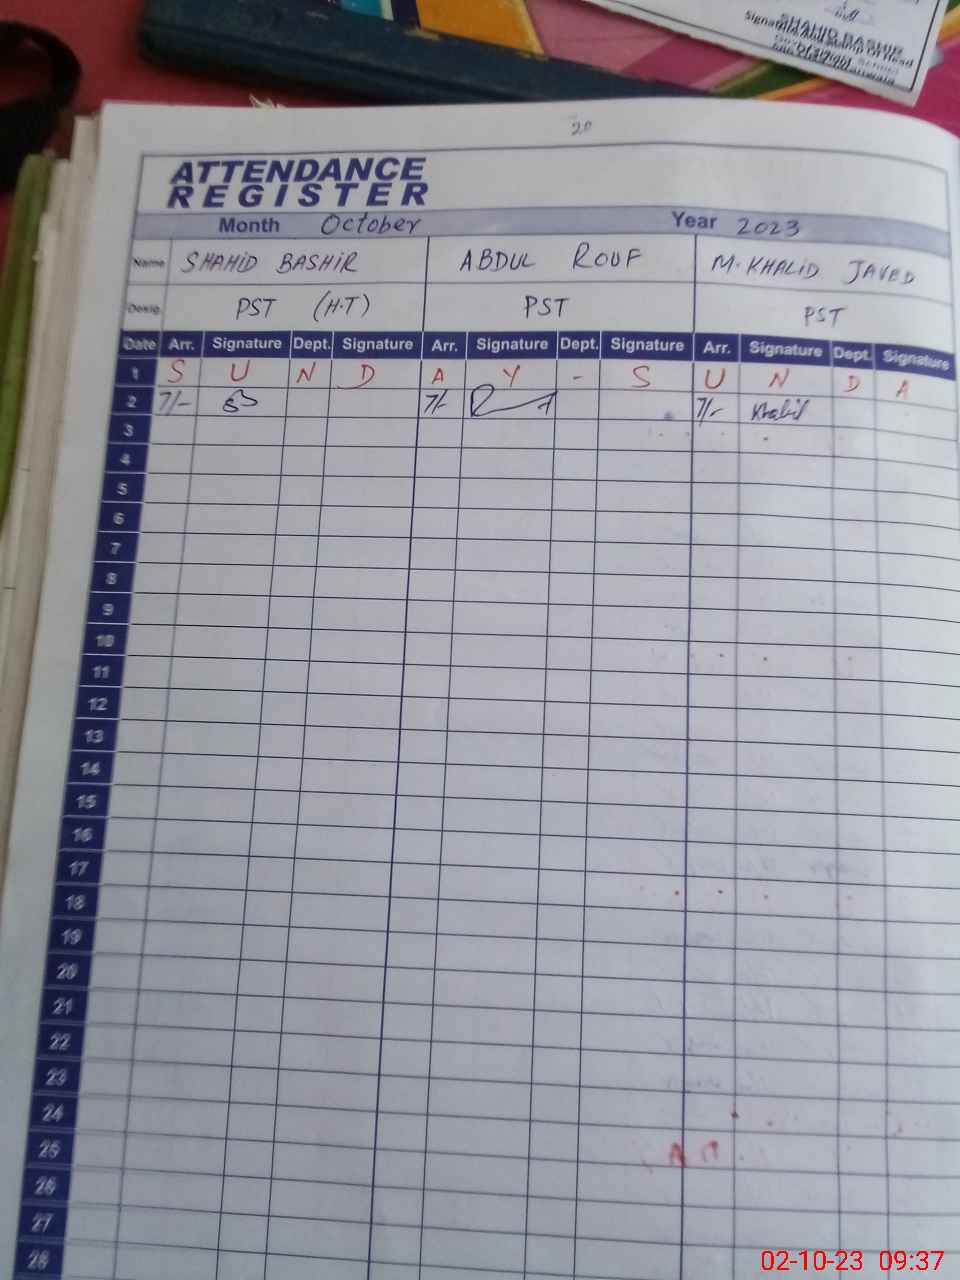 SHAHID BASHIR
20
ATTENDANCE
REGISTER
Month October Year 2023
Name SHAHID BASHIR ABDUL ROUF M. KHALID JAVED
Desig. PST (H.T) PST PST
Date Arr. Signature Dept. Signature Arr. Signature Dept. Signature Arr. Signature Dept. Signature
1 S U N D A Y - S U N D A
2 7/- 7/- 7/- Khalid
3
4
5
6
7
8
9
10
11
12
13
14
15
16
17
18
19
20
21
22
23
24
25
26
27
28
02-10-23 09:37